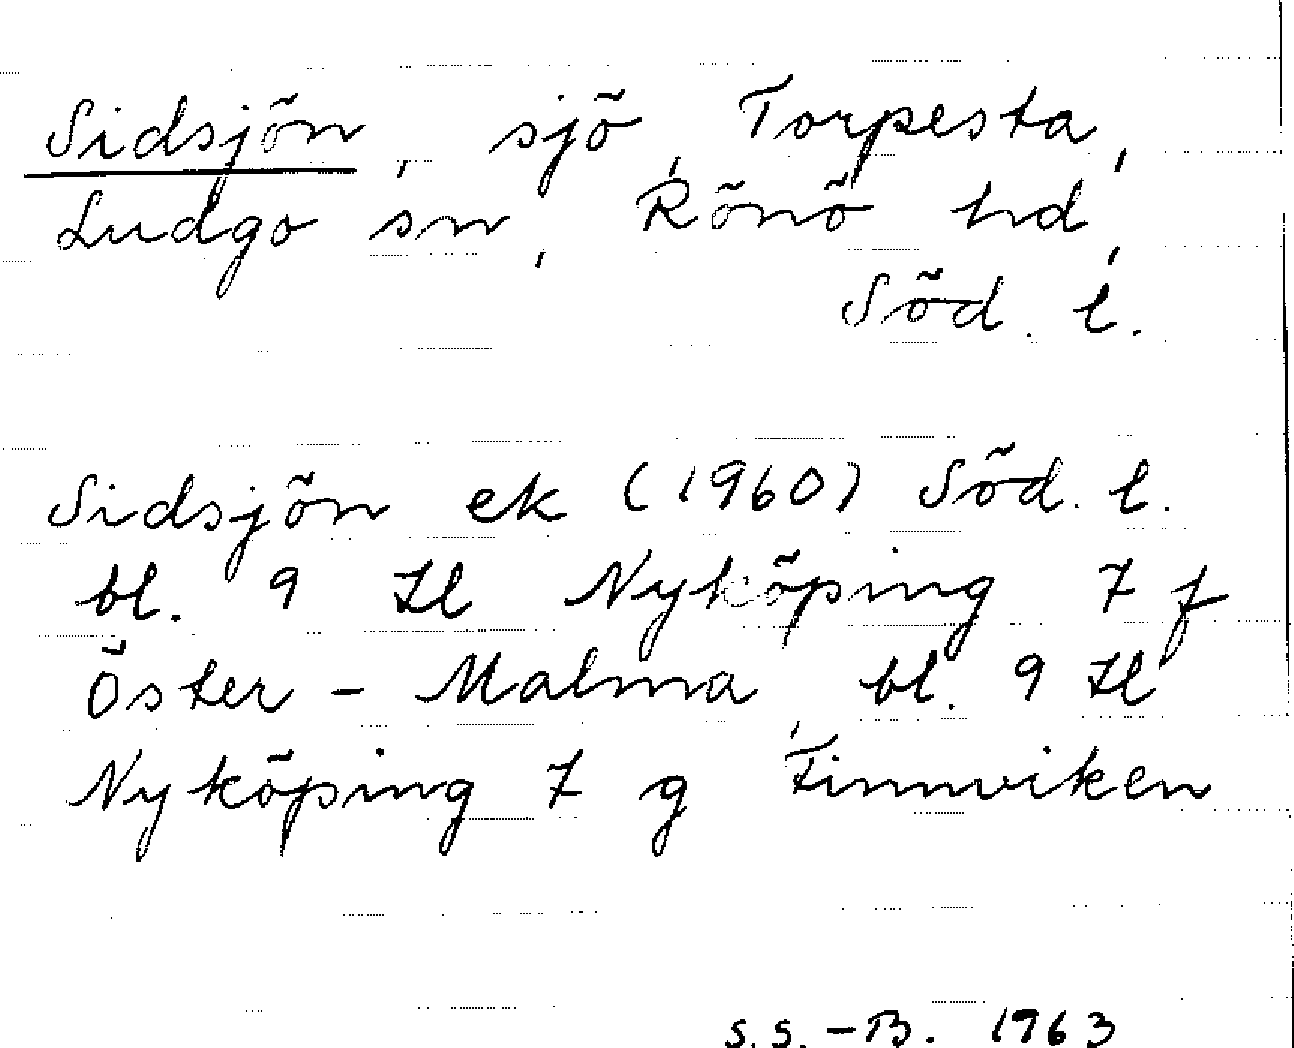 Sidsjön, sjö, Torpesta,
Ludgo sn, Rönö hd,
Söd. l.
Sidsjön ek (1960) Söd. l.
bl. 9 H Nyköping 7 f
Öster-Malma, bl. 9 H
Nyköping 7 g Finnviken
S.S.-B. 1963